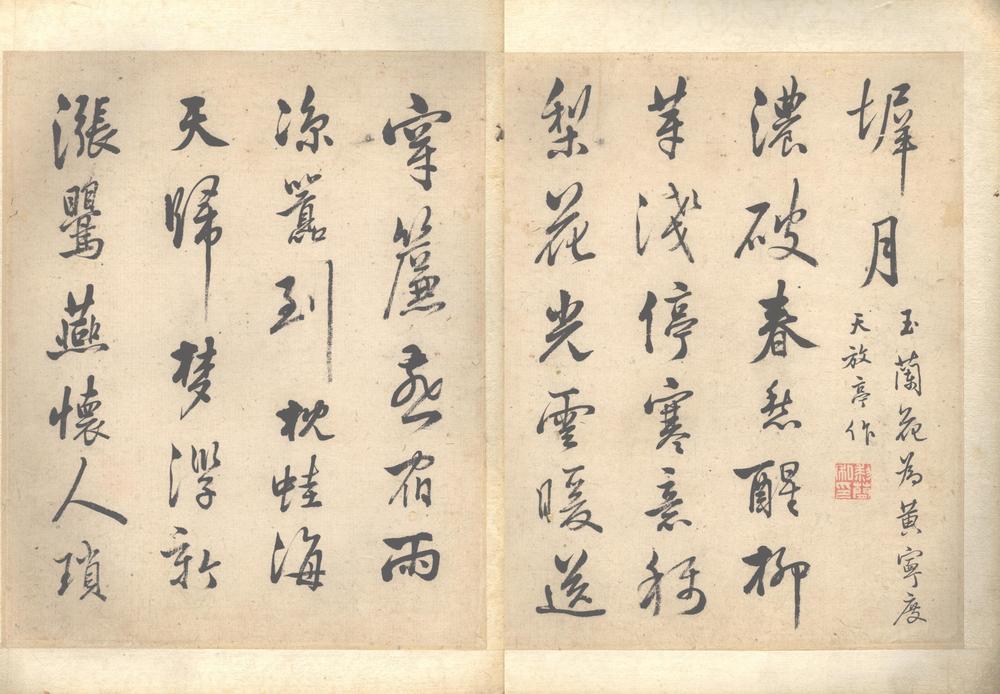 墀月
玉蘭花為黃寧度
天放亭作
濃破春愁醒柳
芽淺停寒意稱
梨花光雲暖送
穿簾宿雨
涼囂到枕蛙海
天歸梦新
漲鸎燕懷人瑣